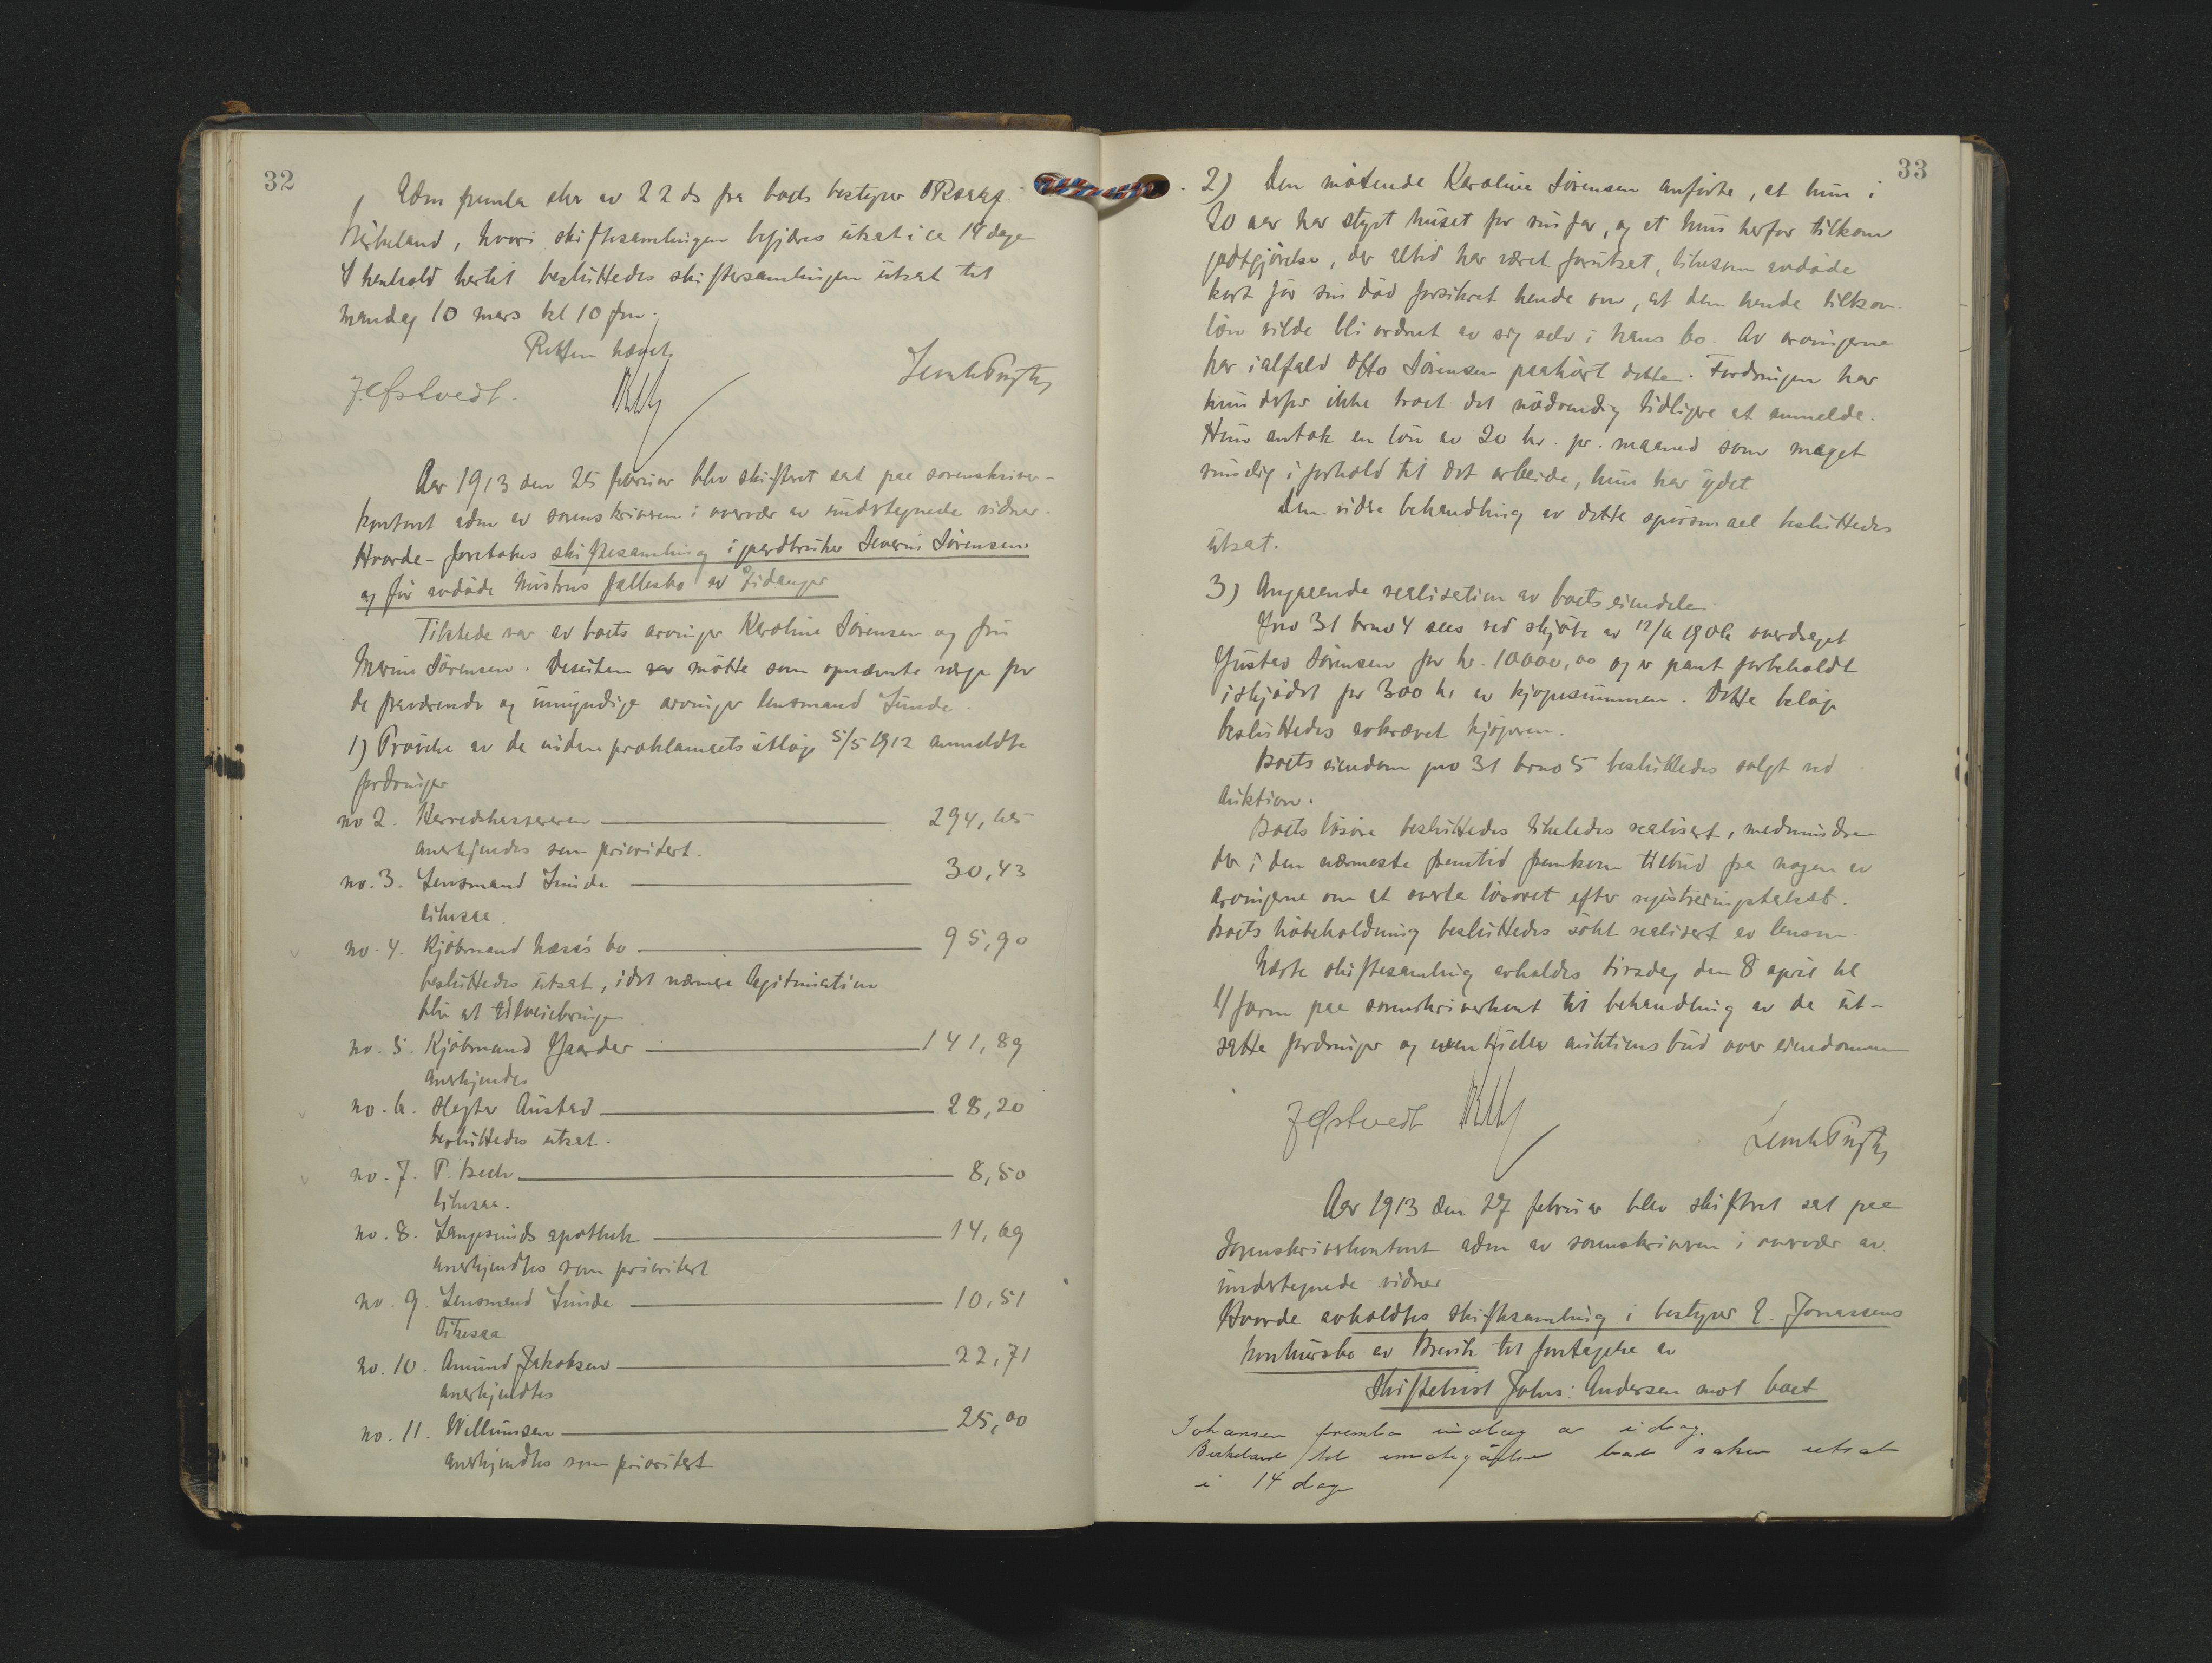 32
Adm fremla skr av 22 ds fra boets bestyrer ORsakf.
Birkeland, hvori skiftesamlingen begjæres utsat i ca 14 dage
I henhold hertil besluttedes skiftesamlingen utsat til
mandag 10 mars kl 10 fm.
Retten hævet
J. Østvedt.
Aar 1913 den 25 februar blev skifteret sat paa sorenskriver-
kontoret adm av sorenskriveren i overvær av undertegnede vidner.
Hvorde foretokes skiftesamling i gaardbruker Severin Sørensen
og før avdøde hustrus fællesbo av Eidanger
Tilstede var av boets arvinger Karoline Sørensen og fru
Marine Sørensen. Desuten møtte som opnævnte verge for
de fraværende og umyndige arvinger lensmand Lunde.
1) Prøvelse av de inden proklamaets utløp 5/5 1912 anmeldte
fordringer
no 2. Herredskassereren 294,65
anerkjendes som prioritert.
no. 3. Lensmand Lunde 30,43
likesaa.
no. 4. Kjøbmand Næss's bo 95,90
besluttedes utsat, idet nærmere legitimation
blir at tilveiebringe
no. 5. Kjøbmand Gaarder 141,89
anerkjendes
no. 6. Slagter Austad 28,20
besluttedes utsat.
no. 7. P. Bech 8,50
likesaa.
no. 8. Langesunds apothek 14,69
anerkjendtes som prioritert
no. 9. Lensmand Lunde 10,51
likesaa
no. 10. Amund Jakobsen 22,71
anerkjendtes
no. 11. Willumsen 25,00
anerkjendtes som prioritert
33
2) Den møtende Karoline Sørensen anførte, at hun i
20 aar har styrt huset for sin far, og at hun herfor tilkom
godtgjørelse, der altid har været forutsat, likesom avdøde
kort før sin død forsikret hende om, at den hende tilkom.
løn vilde bli ordnet av sig selv i hans bo. Av arvingerne
har ialfald Otto Sørensen paahørt dette. Fordringen har
hun derfor ikke troet det nødvendig tidligere at anmelde.
Hun antok en løn av 20 kr. pr. maaned som meget
rimelig i forhold til det arbeide, hun har ydet
Den videre behandling av dette spørsmaal besluttedes
utsat.
3) Angaaende realisation av boets eiendele.
Gno 31 brno 4 sees ved skjøte av 12/6 1906 overdraget
Gustav Sørensen for kr. 10000,00 og er pant forbeholdt
i skjødet for 300 kr av kjøpesummen. Dette beløp
besluttedes avkrævet kjøperen.
Boets eiendom gno 31 brno 5 besluttedes solgt ved
auktion.
Boets løsøre besluttedes likeledes realisert, medmindre
der i den nærmeste fremtid fremkom tilbud fra nogen av
arvingerne om at overta løsøret efter registreringstakst.
Boets høbeholdning besluttedes søkt realisert av lensm.
Næste skiftesamling avholdes tirsdag den 8 april kl
11 form paa sorenskriverkont til behandling av de ut-
satte fordringer og eventueller auktionsbud over eiendommen
J Østvedt
Aar 1913 den 27 februar blev skifteret sat paa
Sorenskriverkontoret adm av sorenskriveren i overvær av
undertegnede vidner
Hvorde avholdtes skiftesamling i bestyrer E. Jonassens
konkursbo av Brevik til foretagelse av
Skiftetvist Johs: Andersen mot boet
Johansen fremla indlæg av idag.
Birkeland til imøtegåelse bad saken utsat
i 14 dage